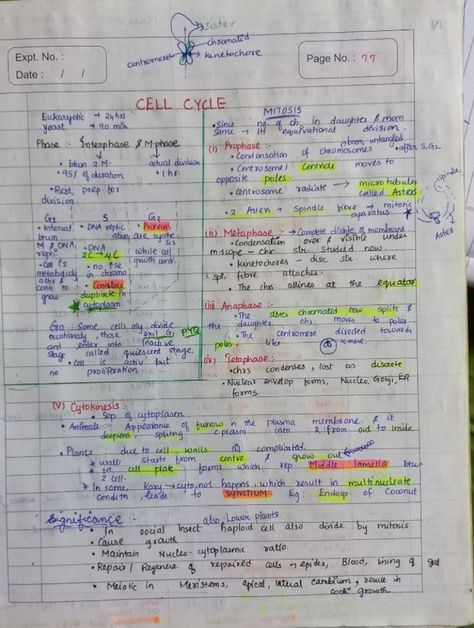 Sister
chromated
centromere
kinetochore
Expt. No. :
Date : / /
Page No. : 77
CELL CYCLE
Eukaryotic → 24hrs
yeast → 90 min
Phase :- Interphase & M-phase
• btwn 2 M.
• actual division
• 95% of duration
• 1 hr.
• Rest, prep for
division
G1 S G2
• Interval
btwn
M & DNA
repli
• DNA replic
• DNA
2C → 4C
• no
in chromo
• Centriole
duplicate in
cytoplasm
• Proteins
while cell
growth cont.
metabolically
activ &
cont to
grow
G0 : Some cells only divide
occationaly, thos exit G1 PYQ
and enter into Inactive
stage called quiescent stage.
• Cell is active but
no proliferation
MITOSIS
• Since no. of ch. in daughter & mom
same → It equational division.
(i) Prophase :-
• after S, G2
• Condensation of chromosomes
• Centrosome / Centriole moves to
opposite poles
• centrosome radiate → microtubules
called Asters
• 2 Asters + spindle fibre → mitotic
apparatus
spindle
Aster
(ii) Metaphase :- → Complete disinte of membrane
• Condensation over & visible under
m scope → chr str. studied now
• kinetochores → disc str where
spl. fibre attaches
• The chrs allines at the equator
(iii) Anaphase :-
• The sister chromated now splits &
the daughter chs moves to poles
• The centromere directed towards
poles like
(iv) Telophase :-
• chrs condenses, lost as discrete
• Nuclear envelop forms, Nucleo, Golgi, ER
forms.
(v) Cytokinesis :-
• Sep. of cytoplasm
• Animals :- Appearance of furrow in the plasma membrane, & it
deepens spliting cplasm into 2 from out to inside
• Plants : due to cell walls complicated.
* wall starts from centre & grow out
* cell plate forms which rep Middle lamella btwn
2 cell.
* In some, kary → cyto not happns, which result in multinucleate
condition, leads to SYNCTIUM Eg: Endosp of Coconut
Significance :-
also Lower plants
• In social Insect haploid cell also divide by mitosis.
• Cause growth
• Maintain Nucleo-cytoplasmic ratio.
• Repair / Regenerate of repaired cells → epider, Blood, lining of gut
• Meiotic in Meristems, apical, lateral cambium, result in
cont growth